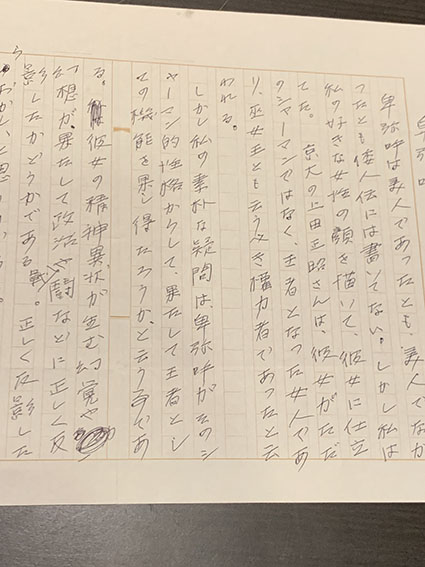 卑弥呼
卑弥呼は美人であったとも、美人でなか
ったとも倭人伝には書いてない。しかし私は
私の好きな女性の顔を描いて、彼女に仕立
てた。京大の上田正昭さんは、彼女がただ
のシャーマンではなく、王者となった女人であ
り、巫女王とも云うべき権力者であったと云
われる。
しかし私の素朴な疑問は、卑弥呼がそのシ
ャーマン的性格からして、果たして王者とし
ての機能を果し得たろうか、と云う事であ
る。彼女の精神異状が生む幻覚や
幻想が果たして政治や戦闘などに正しく反
影したかどうかである。正しく反影した
おかしいと思